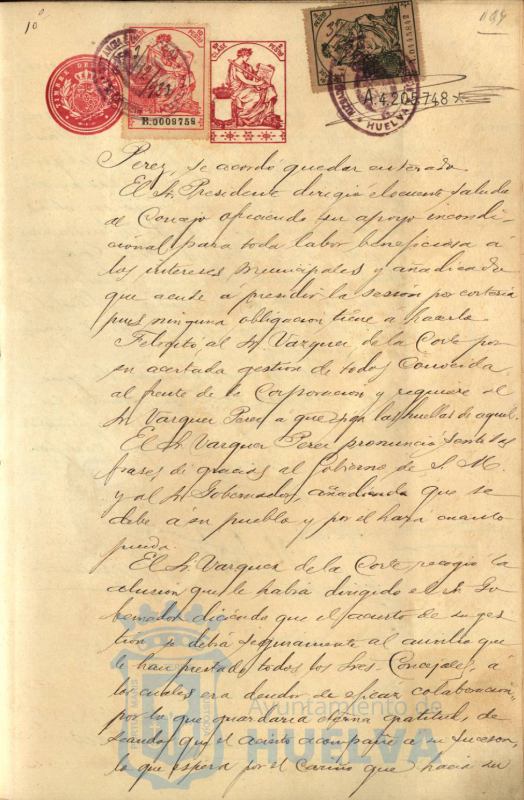 10º
TIMBRE DEL
CLASE
PESETAS
B.0009758
CLASE
PESETAS
HUELVA
A4.205748*
Perez, se acordó quedar enterado.
El Sr. Presidente dirigió elocuente saludo
al Concejo ofreciendo su apoyo incondi-
cional para toda labor beneficiosa á
los intereses municipales y añadiendo
que acude á presidir la sesión por cortesia
pues ninguna obligacion tiene á hacerlo.
Felicitó al Sr. Vazquez de la Corte por
su acertada gestion de todos conocida,
al frente de la Corporacion y requiere al
Sr. Vazquez Perez á que siga las huellas de aquel.
El Sr. Vazquez Perez pronunció sentidas
frases de gracias al Gobierno de S. M.
y al Sr. Gobernador, añadiendo que se
debe á su pueblo y por él hará cuanto
pueda.
El Sr. Vazquez de la Corte recogió la
alusion que le habia dirigido el Sr. Go-
bernador diciendo que el acierto de su ges-
tion se debía seguramente al auxilio que
le han prestado todos los Sres. Concejales, á
los cuales era deudor de eficaz colaboracion,
por lo que guardaria eterna gratitud, de-
seando que el acierto acompañe á su sucesor,
lo que espera por el cariño que hacia su
Ayuntamiento de
HUELVA